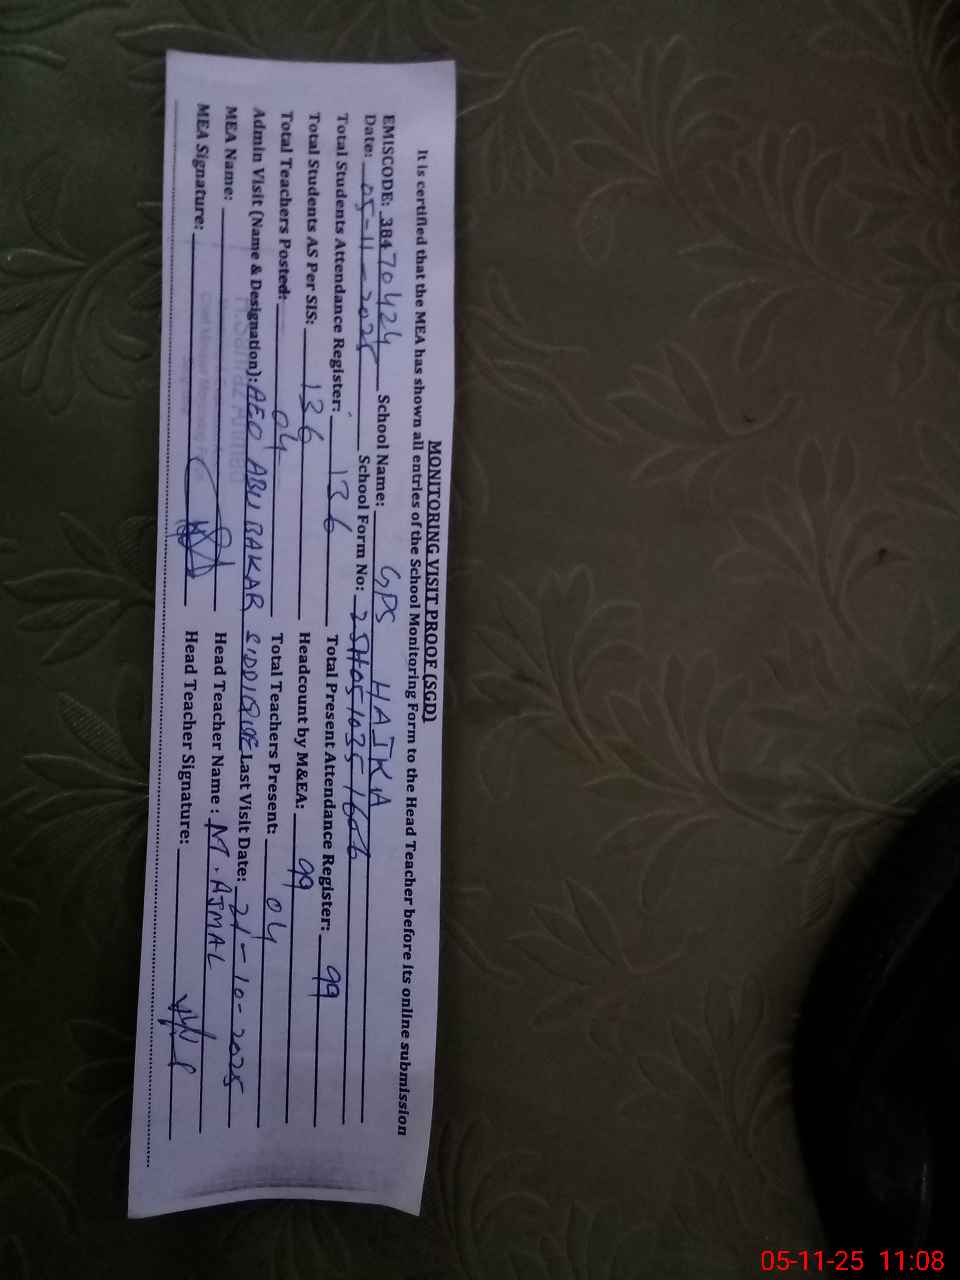 MONITORING VISIT PROOF (SGD)
It is certified that the MEA has shown all entries of the School Monitoring Form to the Head Teacher before its online submission
EMISCODE: 38470424 School Name: GPS HAJKA
Date: 05-11-2025 School Form No:
Total Students Attendance Register: 136 Total Present Attendance Register: 99
Total Students AS Per SIS: 136 Headcount by M&EA: 99
Total Teachers Posted: 04 Total Teachers Present: 04
Admin Visit (Name & Designation): AEO ABU BAKAR SIDDIQUE Last Visit Date: 21-10-2025
MEA Name: Head Teacher Name : M. AJMAL
MEA Signature: Head Teacher Signature:
05-11-25 11:08